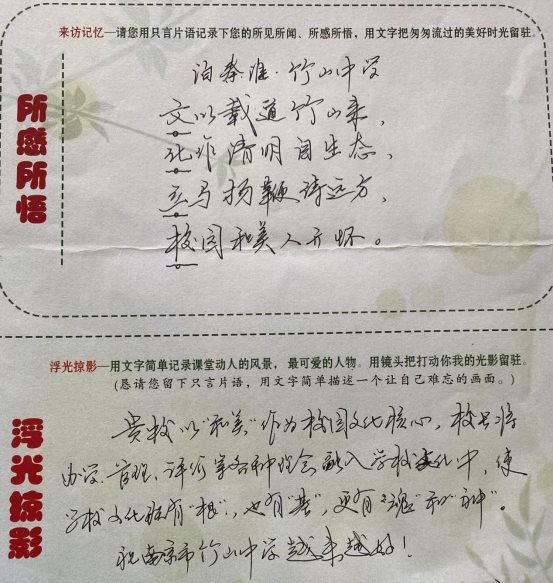 来访记忆—请您用只言片语记录下您的所见所闻、所感所悟，用文字把匆匆流过的美好时光留驻。
所感所悟
泊秦淮·竹山中学
文以载道竹山来，
化作清明自生态，
立马扬鞭诗远方，
校园和美人开怀。
浮光掠影—用文字简单记录课堂动人的风景，最可爱的人物。用镜头把打动你我的光影留驻。
（恳请您留下只言片语，用文字简单描述一个让自己难忘的画面。）
浮光掠影
贵校以“和美”作为校园文化核心，校长将
办学、管理、评价等各种理念融入学校文化中，使
学校文化既有“根”，也有“基”，更有“魂”和“神”。
祝南京市竹山中学越来越好！